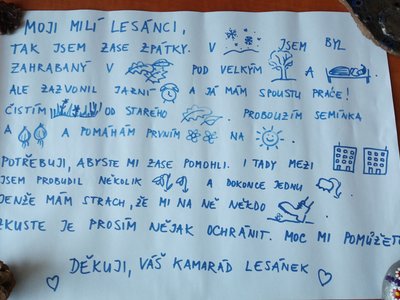 MOJI MILÍ LESÁNCI,
TAK JSEM ZASE ZPÁTKY. V JSEM BYL
ZAHRABANÝ V POD VELKÝM A
ALE ZAZVONIL JARNÍ A JÁ MÁM SPOUSTU PRÁCE!
ČISTÍM OD STARÉHO . PROBOUZÍM SEMÍNKA
A A POMÁHÁM PRVNÍM NA .
POTŘEBUJI, ABYSTE MI ZASE POMOHLI. I TADY MEZI
JSEM PROBUDIL NĚKOLIK A DOKONCE JEDNU .
JENŽE MÁM STRACH, ŽE MI NA NĚ NĚKDO .
ZKUSTE JE PROSÍM NĚJAK OCHRÁNIT. MOC MI POMŮŽETE
DĚKUJI, VÁŠ KAMARÁD LESÁNEK